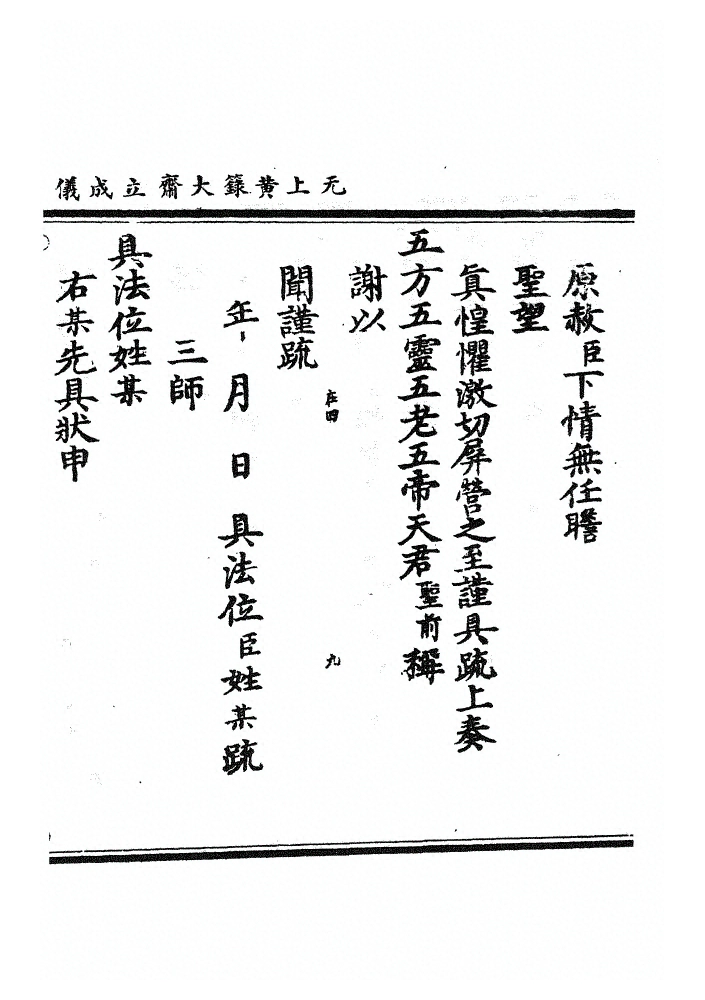 无上黄籙大齋立成儀
原赦臣下情無任瞻
聖望
眞惶懼激切屏營之至謹具疏上奏
五方五靈五老五帝天君聖前稱
謝以
聞謹疏
庄四
九
年月日具法位臣姓某疏
三師
具法位姓某
右某先具狀申